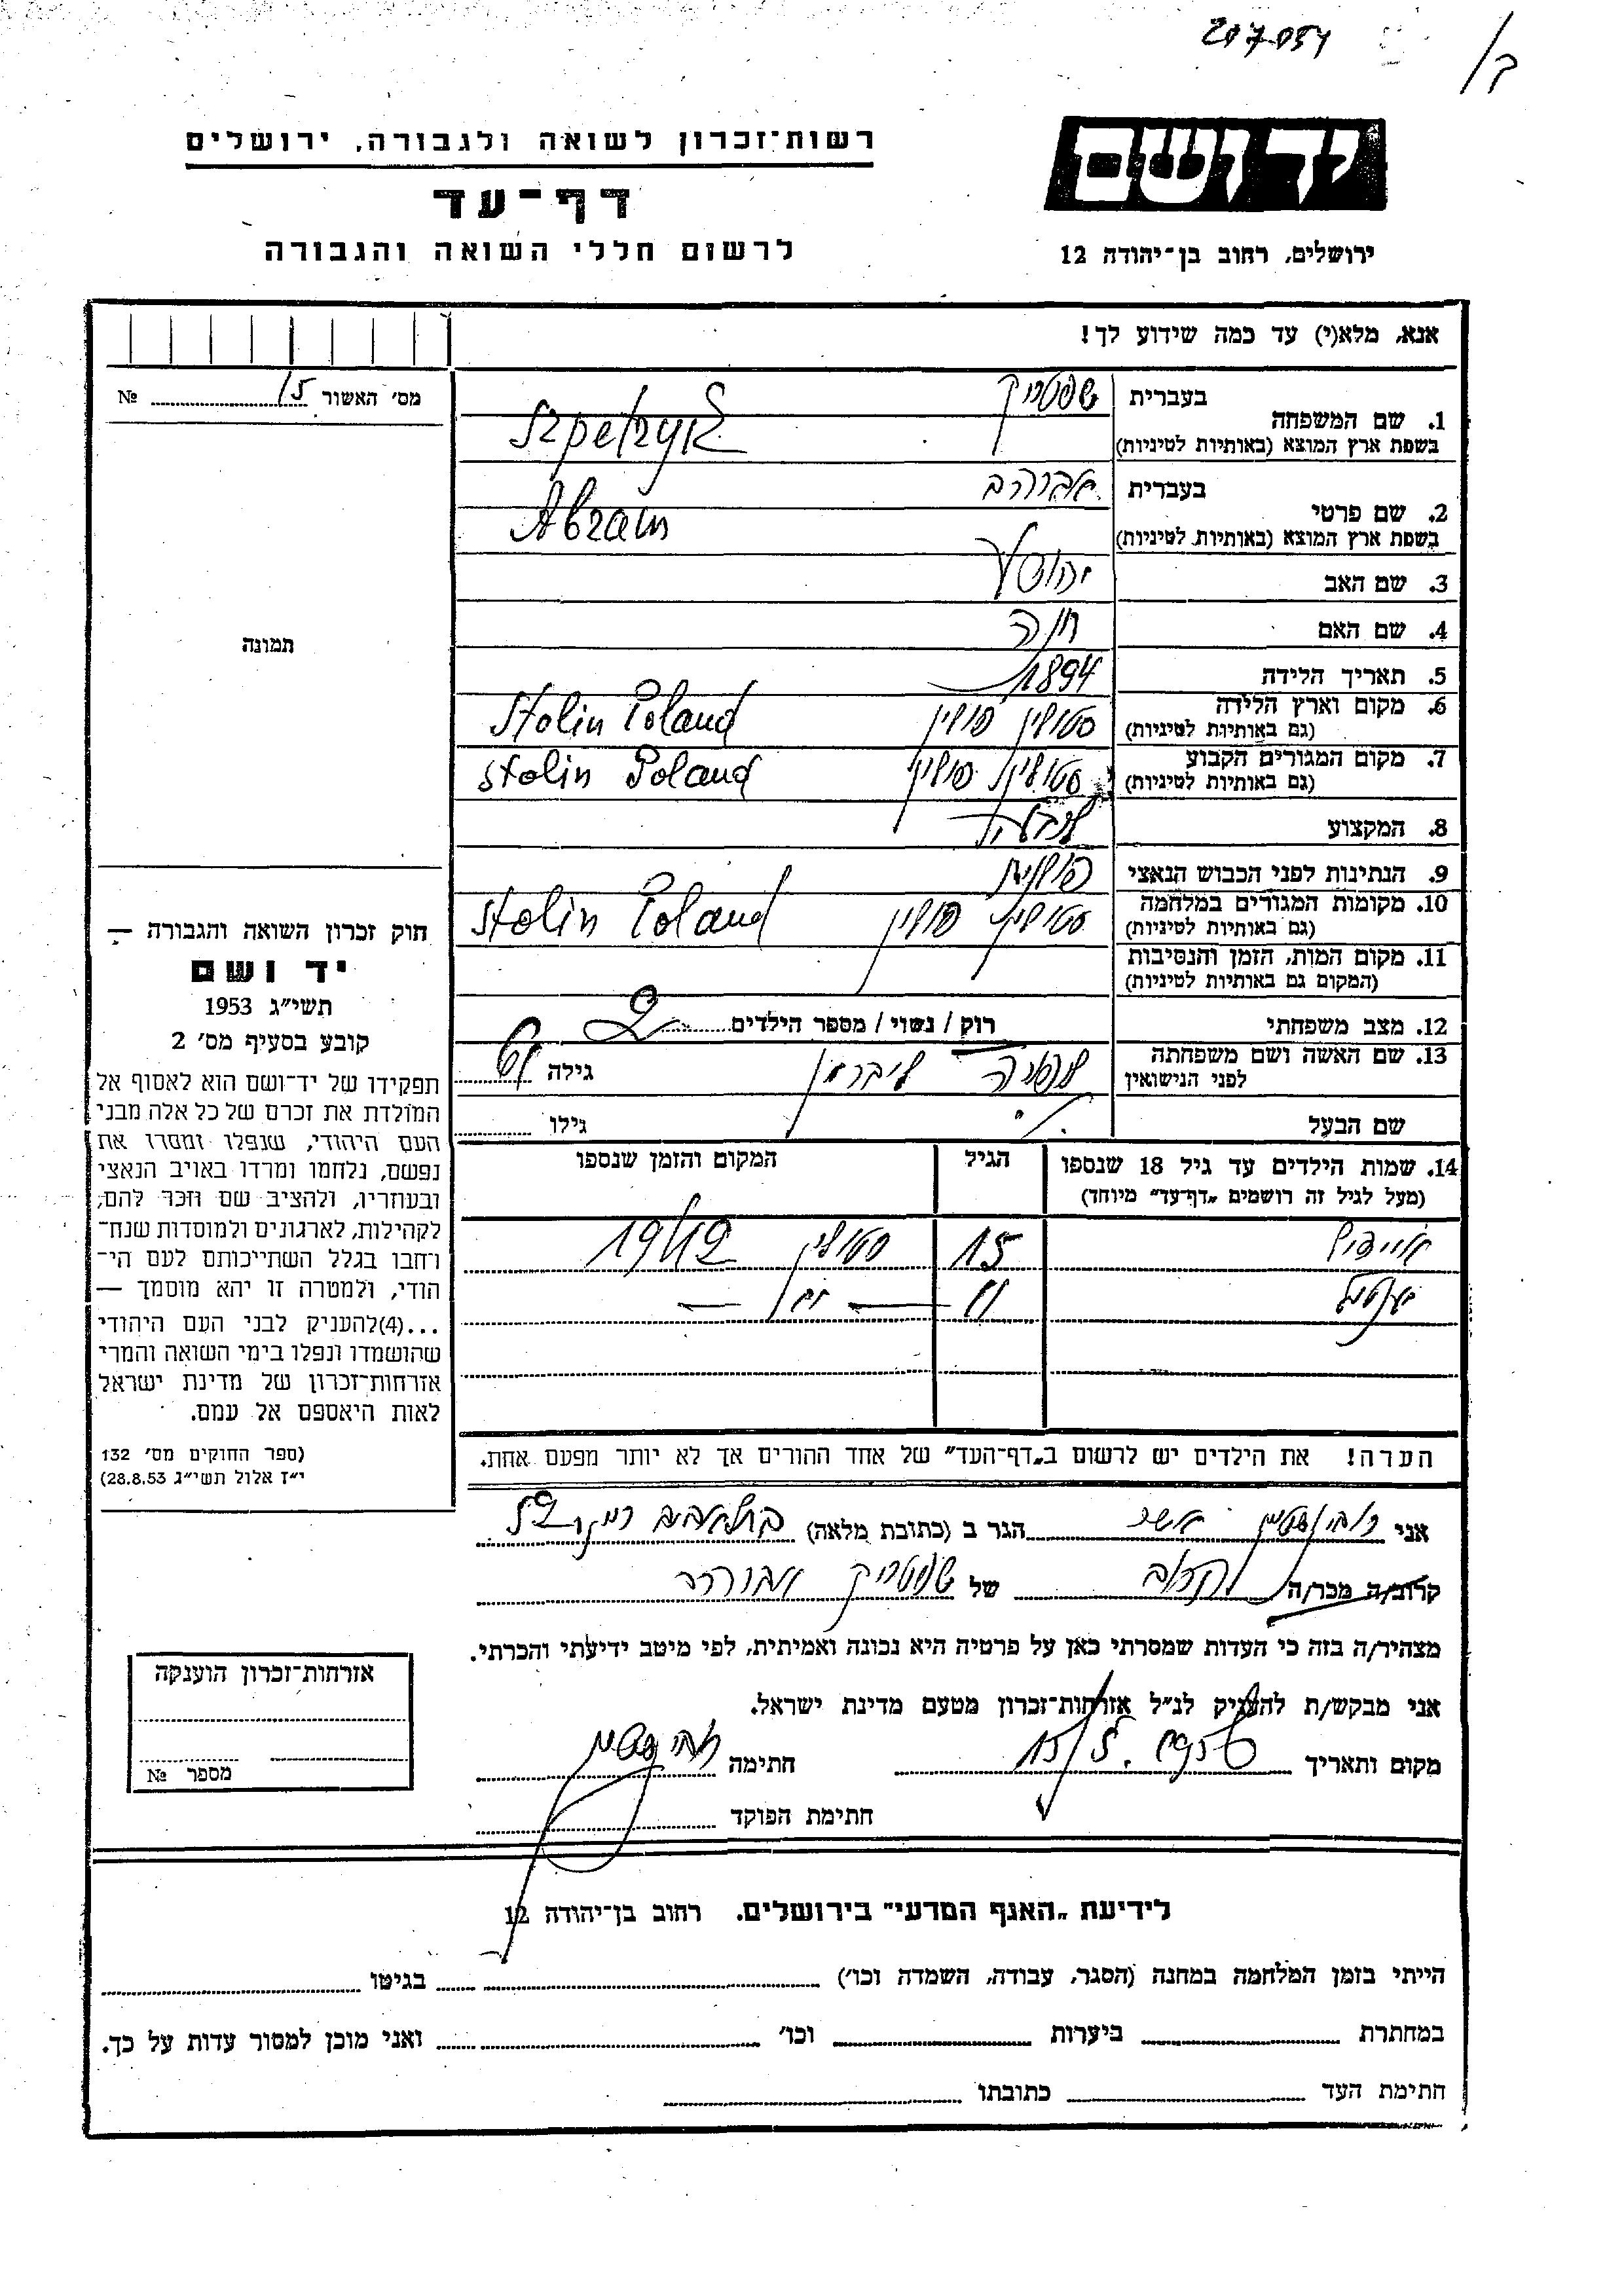 207054
ב/
יד ושם
ירושלים, רחוב בן־יהודה 12
רשות־זכרון לשואה ולגבורה, ירושלים
דף־עד
לרשום חללי השואה והגבורה
אנא, מלא(י) עד כמה שידוע לך!
מס׳ האשור 15 №
תמונה
1. שם המשפחה בעברית שפטריק
בשפת ארץ המוצא (באותיות לטיניות) Szpetryk
2. שם פרטי בעברית אברהם
בשפת ארץ המוצא (באותיות לטיניות) Abram
3. שם האב יהושע
4. שם האם חנה
5. תאריך הלידה 1894
6. מקום וארץ הלידה (גם באותיות לטיניות) סטולין פולין Stolin Poland
7. מקום המגורים הקבוע (גם באותיות לטיניות) סטולין פולין Stolin Poland
8. המקצוע
9. הנתינות לפני הכבוש הנאצי פולנית
10. מקומות המגורים במלחמה (גם באותיות לטיניות) סטולין פולין Stolin Poland
11. מקום המות, הזמן והנסיבות (המקום גם באותיות לטיניות)
12. מצב משפחתי רוק / נשוי / מספר הילדים 2
13. שם האשה ושם משפחתה לפני הנישואין ליברמן גילה
שם הבעל ./. גילו
14. שמות הילדים עד גיל 18 שנספו (מעל לגיל זה רושמים „דף־עד״ מיוחד) הגיל המקום והזמן שנספו
15 סטולין 1942
11 — —
הערה! את הילדים יש לרשום ב„דף־העד״ של אחד ההורים אך לא יותר מפעם אחת.
אני רובינשטיין אשר הגר ב (כתובת מלאה)
קרוב/ה מכר/ה של שפטריק אברהם
מצהיר/ה בזה כי העדות שמסרתי כאן על פרטיה היא נכונה ואמיתית, לפי מיטב ידיעתי והכרתי.
אני מבקש/ת להעניק לנ״ל אזרחות־זכרון מטעם מדינת ישראל.
מקום ותאריך 15/5. 1956 חתימה רובינשטיין
חתימת הפוקד
חוק זכרון השואה והגבורה —
יד ושם
תשי״ג 1953
קובע בסעיף מס׳ 2
תפקידו של יד־ושם הוא לאסוף אל
המולדת את זכרם של כל אלה מבני
העם היהודי, שנפלו ומסרו את
נפשם, נלחמו ומרדו באויב הנאצי
ובעוזריו, ולהציב שם וזכר להם,
לקהילות, לארגונים ולמוסדות שנח־
רחבו בגלל השתייכותם לעם הי־
הודי, ולמטרה זו יהא מוסמך —
...(4)להעניק לבני העם היהודי
שהושמדו ונפלו בימי השואה והמרי
אזרחות־זכרון של מדינת ישראל
לאות היאספם אל עמם.
(ספר החוקים מס׳ 132
י״ז אלול תשי״ג 28.8.53)
אזרחות־זכרון הוענקה
מספר №
לידיעת „האגף המדעי״ בירושלים, רחוב בן־יהודה 12
הייתי בזמן המלחמה במחנה (הסגר, עבודה, השמדה וכו׳) בגיטו
במחתרת ביערות וכו׳ ואני מוכן למסור עדות על כך.
חתימת העד כתובתו